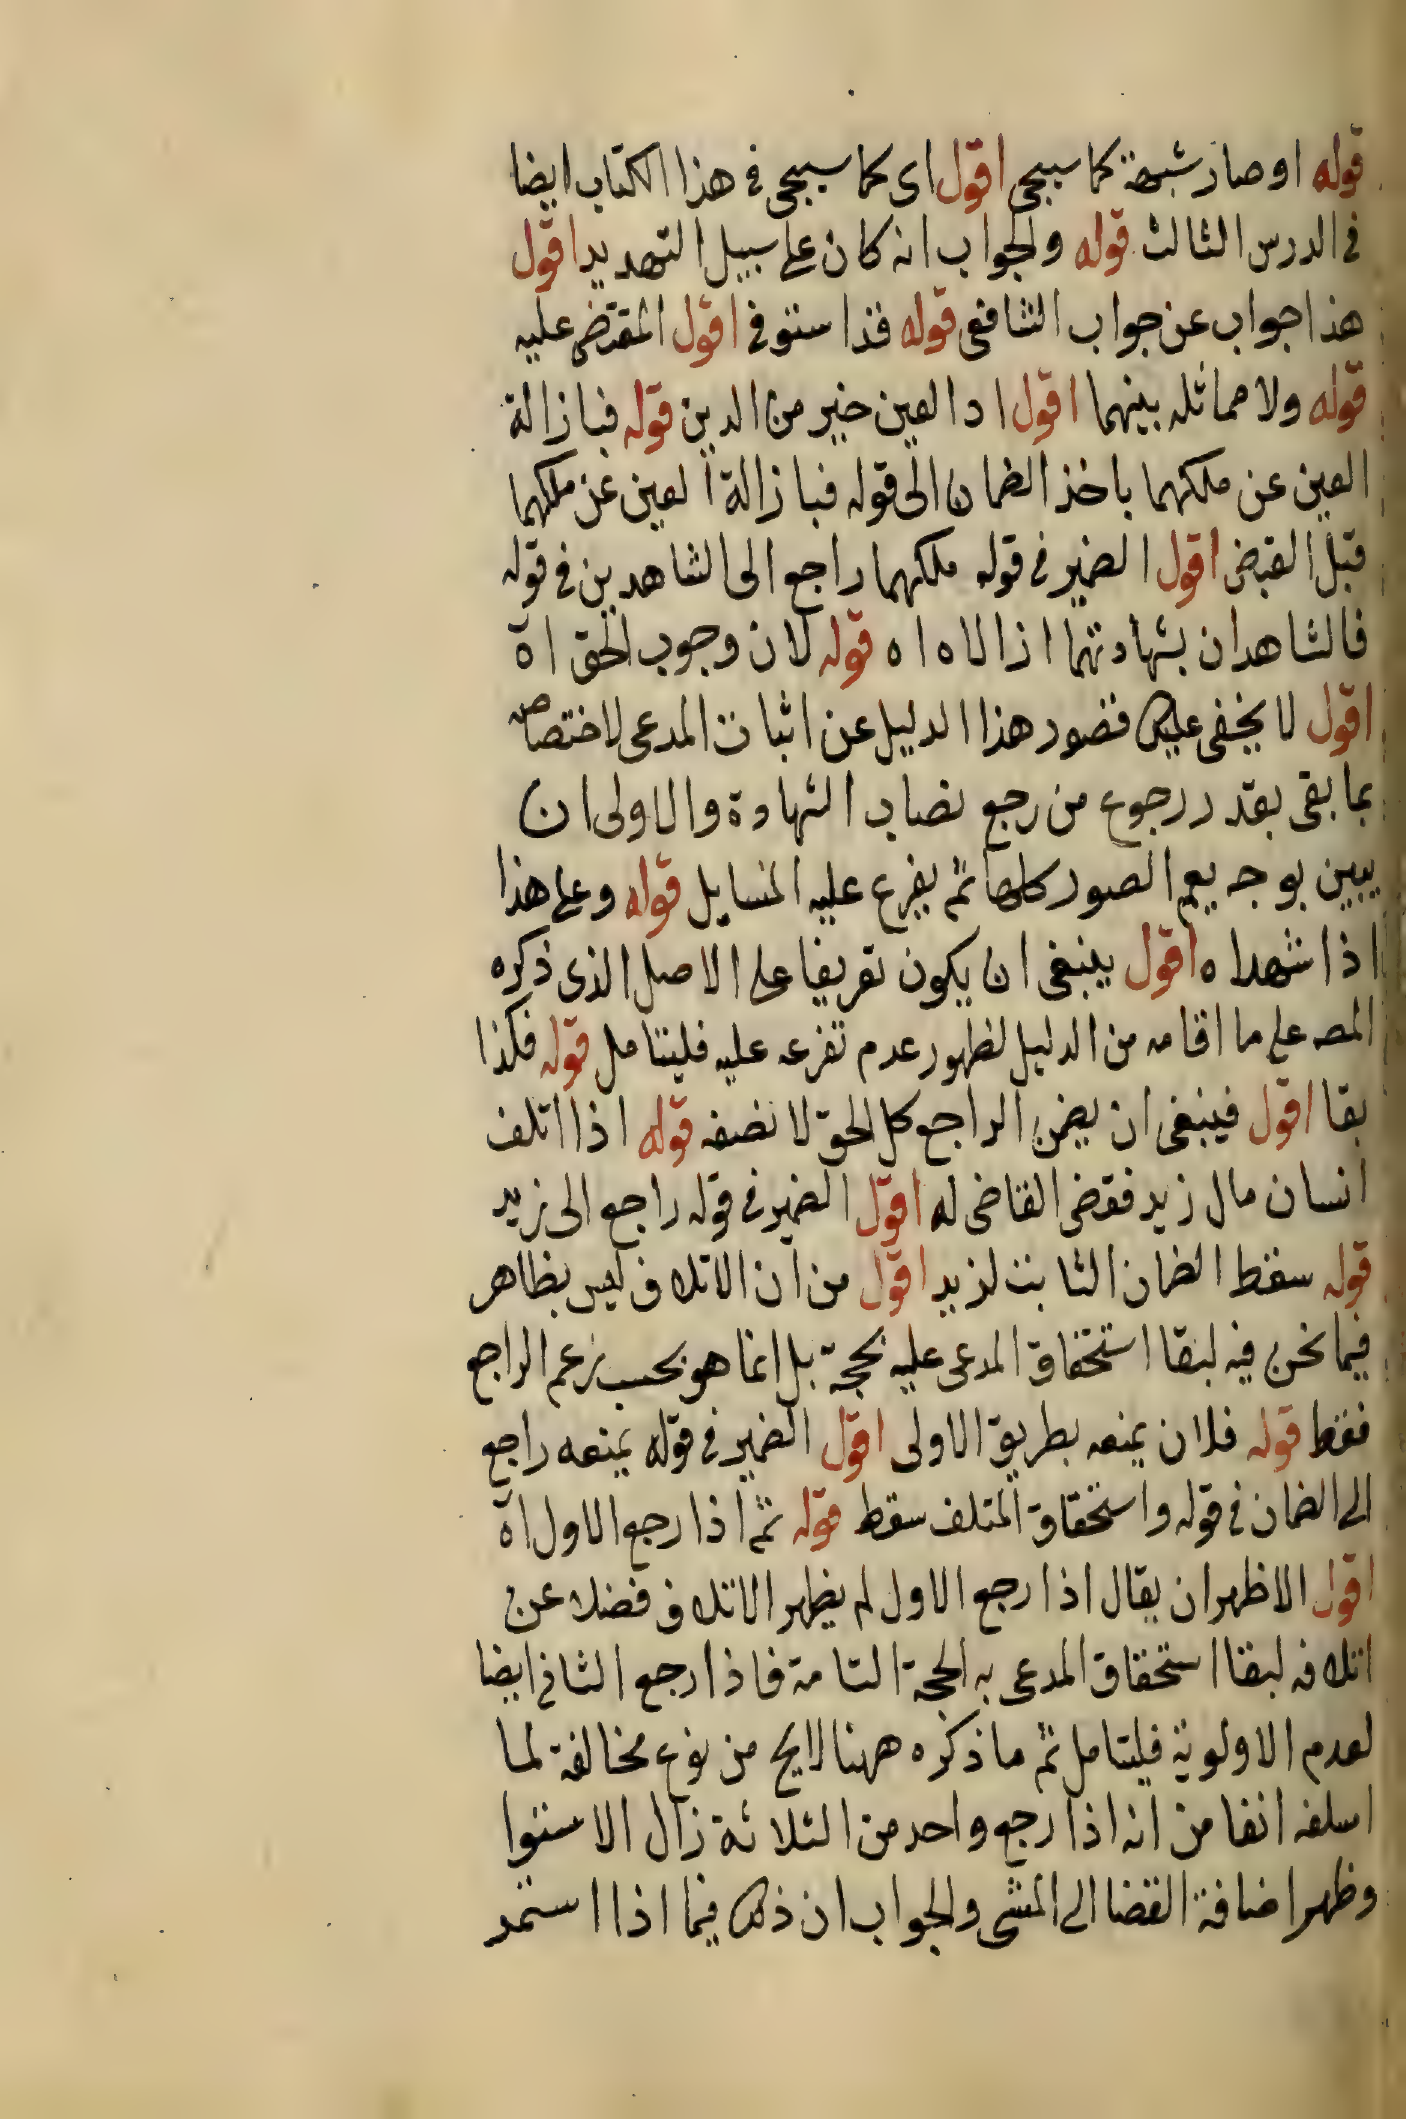 قوله او صار شبهة كما سيجى اقول اى كما سيجى فى هذا الكتاب ايضا
فى الدرس الثالث قوله والجواب انه كان على سبيل التهديد اقول
هذا جواب عن جواب الشافعى قوله فذا ستوفى اقول المقتضى عليه
قوله ولا مماثله بينهما اقول اذ العين خير من الدين قوله فبازالة
العين عن ملكهما باخذ الضمان الى قوله فبازالة العين عن ملكهما
قبل القبض اقول الضمير فى قوله ملكهما راجع الى الشاهدين فى قوله
فالشاهدان بشهادتهما ازالاه اه قوله لان وجوب الحق اه
اقول لا يخفى عليك قصور هذا الدليل عن اثبات المدعى لاختصاصه
بما بقى بعد رجوع من رجع نصاب الشهادة والاولى ان
يبين بوجه يعم الصور كلها ثم يفرع عليه المسايل قوله وعلى هذا
اذا شهدا ه اقول ينبغى ان يكون تفريعا على الاصل الذى ذكره
المصه على ما اقامه من الدليل لظهور عدم تفرعه عليه فليتامل قوله فكذا
بقا اقول فينبغى ان يضمن الراجع كل الحق لا نصفه قوله اذا اتلف
انسان مال زيد فقضى القاضى له اقول الضمير فى قوله راجع الى زيد
قوله سقط الضمان الثابت لزيد اقول من ان الاتلاف ليس بظاهر
فيما نحن فيه لبقا استحقاق المدعى عليه بحجة بل انما هو بحسب زعم الراجع
فقط قوله فلان يمنعه بطريق الاولى اقول الضمير فى قوله يمنعه راجع
الى الضمان فى قوله واستحقاق المتلف سقط قوله ثم اذا رجع الاول اه
اقول الاظهر ان يقال اذا رجع الاول لم يظهر الاتلاف فضلا عن
اتلافه لبقا استحقاق المدعى به الحجة التامة فاذا رجع الثانى ايضا
لعدم الاولوية فليتامل ثم ما ذكره ههنا لايح من نوع مخالفة لما
اسلفه انفا من انه اذا رجع واحد من الثلاثة زال الاستوا
وظهر اضافة القضا الى المثنى والجواب ان ذلك فيما اذا استمر